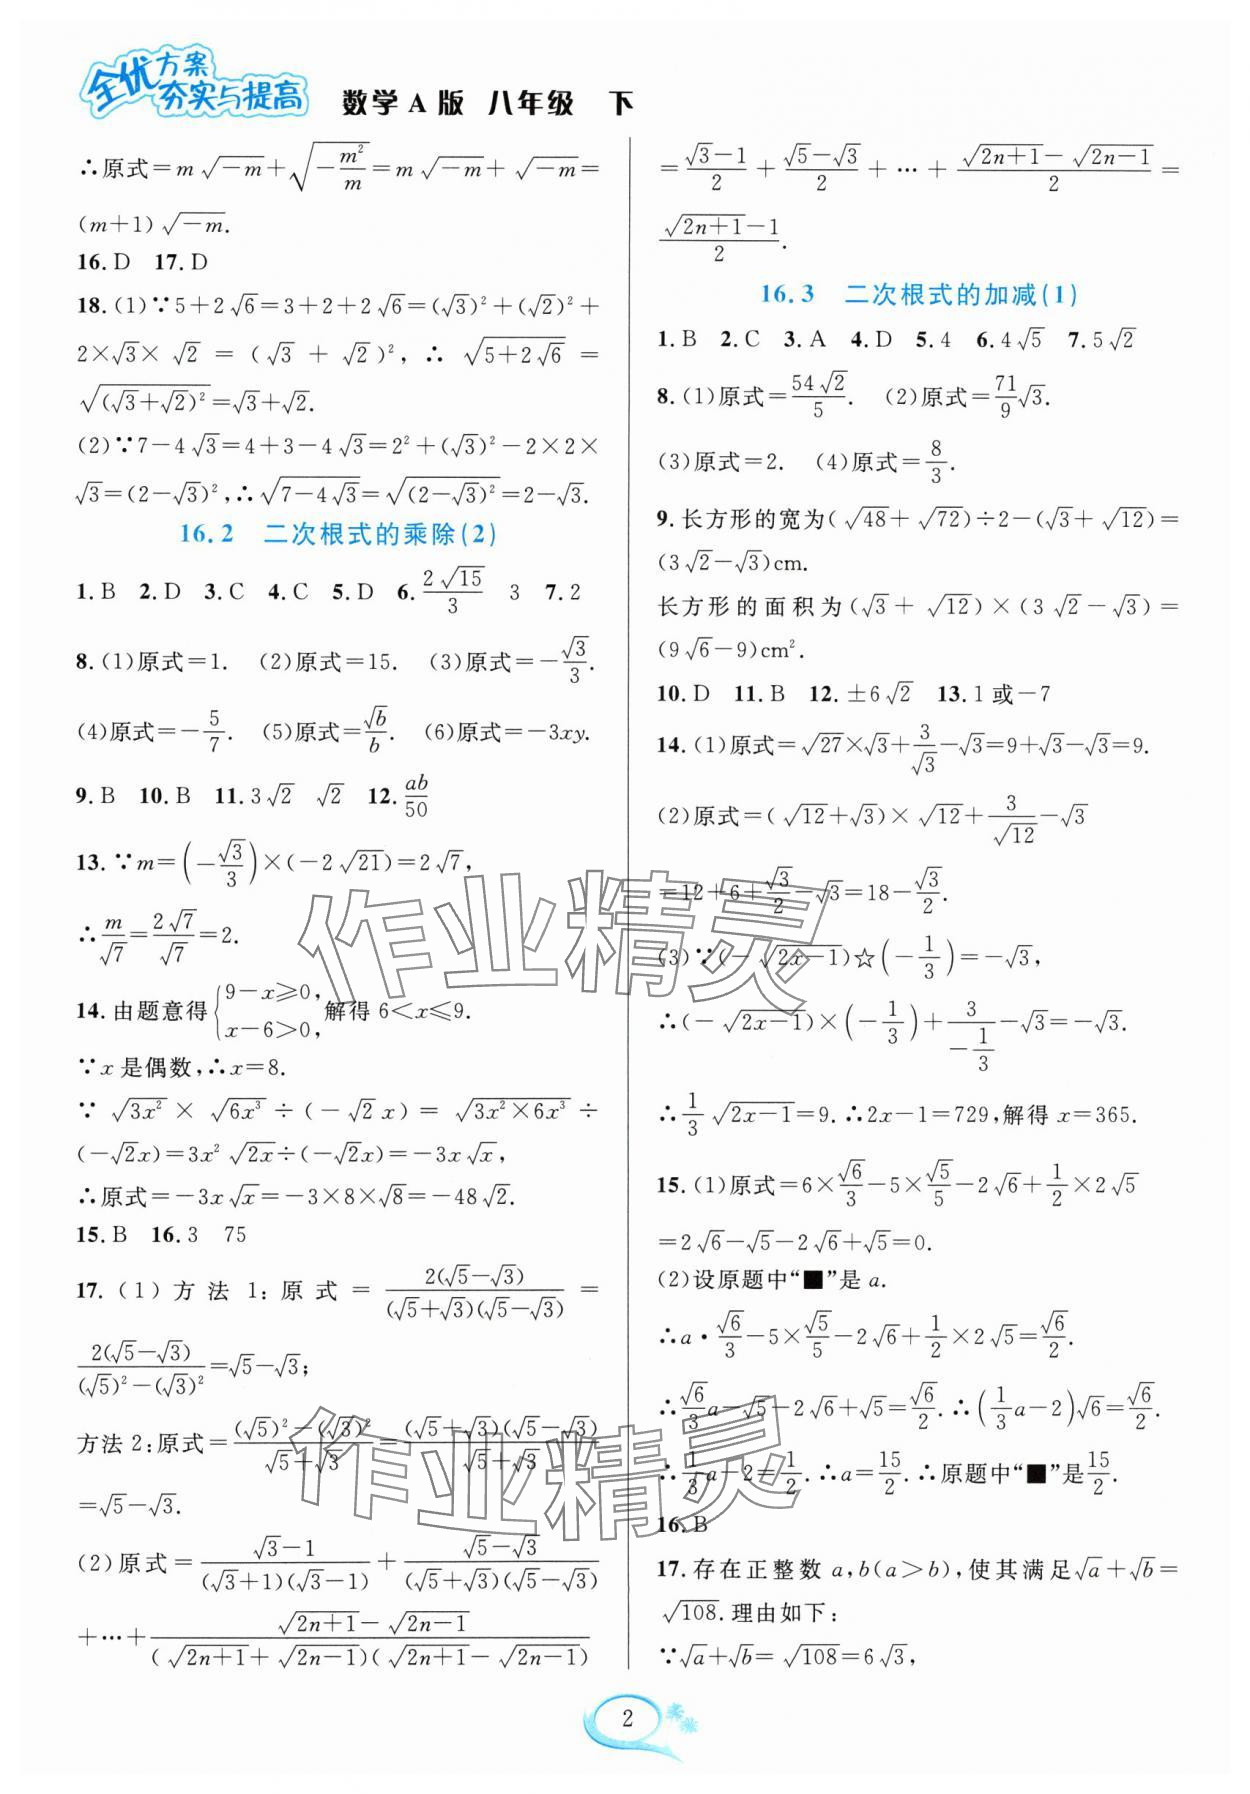 全优方案
夯实与提高
数学A版 八年级 下
∴原式=m√(-m)+√(-m²/m)=m√(-m)+√(-m)=
(m+1)√(-m).
16.D 17.D
18.(1)∵5+2√6=3+2+2√6=(√3)²+(√2)²+
2×√3×√2=(√3+√2)²,∴√(5+2√6)=
√((√3+√2)²)=√3+√2.
(2)∵7-4√3=4+3-4√3=2²+(√3)²-2×2×
√3=(2-√3)²,∴√(7-4√3)=√((2-√3)²)=2-√3.
16.2 二次根式的乘除(2)
1.B 2.D 3.C 4.C 5.D 6.2√15/3 3 7.2
8.(1)原式=1. (2)原式=15. (3)原式=-√3/3.
(4)原式=-5/7. (5)原式=√b/b. (6)原式=-3xy.
9.B 10.B 11.3√2 √2 12.ab/50
13.∵m=(-√3/3)×(-2√21)=2√7,
∴m/√7=2√7/√7=2.
14.由题意得{9-x≥0, x-6>0, 解得6<x≤9.
∵x是偶数,∴x=8.
∵√(3x²)×√(6x³)÷(-√2x)=√(3x²×6x³)÷
(-√2x)=3x²√(2x)÷(-√2x)=-3x√x,
∴原式=-3x√x=-3×8×√8=-48√2.
15.B 16.3 75
17.(1)方法1:原式=2(√5-√3)/((√5+√3)(√5-√3))=
2(√5-√3)/((√5)²-(√3)²)=√5-√3;
方法2:原式=((√5)²-(√3)²)/(√5+√3)=(√5+√3)(√5-√3)/(√5+√3)
=√5-√3.
(2)原式=(√3-1)/((√3+1)(√3-1))+(√5-√3)/((√5+√3)(√5-√3))
+…+(√(2n+1)-√(2n-1))/((√(2n+1)+√(2n-1))(√(2n+1)-√(2n-1)))
=(√3-1)/2+(√5-√3)/2+…+(√(2n+1)-√(2n-1))/2=
(√(2n+1)-1)/2.
16.3 二次根式的加减(1)
1.B 2.C 3.A 4.D 5.4 6.4√5 7.5√2
8.(1)原式=54√2/5. (2)原式=71/9√3.
(3)原式=2. (4)原式=8/3.
9.长方形的宽为(√48+√72)÷2-(√3+√12)=
(3√2-√3)cm.
长方形的面积为(√3+√12)×(3√2-√3)=
(9√6-9)cm².
10.D 11.B 12.±6√2 13.1或-7
14.(1)原式=√27×√3+3/√3-√3=9+√3-√3=9.
(2)原式=(√12+√3)×√12+3/√12-√3
=12+6+√3/2-√3=18-√3/2.
(3)∵(-√(2x-1))☆(-1/3)=-√3,
∴(-√(2x-1))×(-1/3)+3/(-1/3)-√3=-√3.
∴1/3√(2x-1)=9.∴2x-1=729,解得x=365.
15.(1)原式=6×√6/3-5×√5/5-2√6+1/2×2√5
=2√6-√5-2√6+√5=0.
(2)设原题中“■”是a.
∴a·√6/3-5×√5/5-2√6+1/2×2√5=√6/2.
∴√6/3a-√5-2√6+√5=√6/2.∴(1/3a-2)√6=√6/2.
∴1/3a-2=1/2.∴a=15/2.∴原题中“■”是15/2.
16.B
17.存在正整数a,b(a>b),使其满足√a+√b=
√108.理由如下:
∵√a+√b=√108=6√3,
作业精灵
作业精灵
2